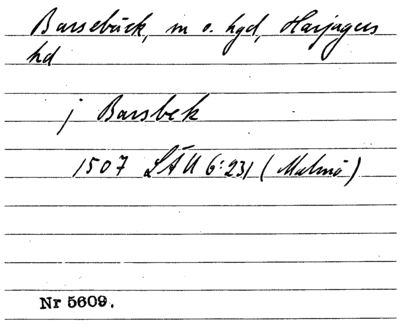 Barsebäck, m o. hgd, Harjagers
hd
j Barsbek
1507 LÄU 6:231 (Malmö)
Nr 5609.